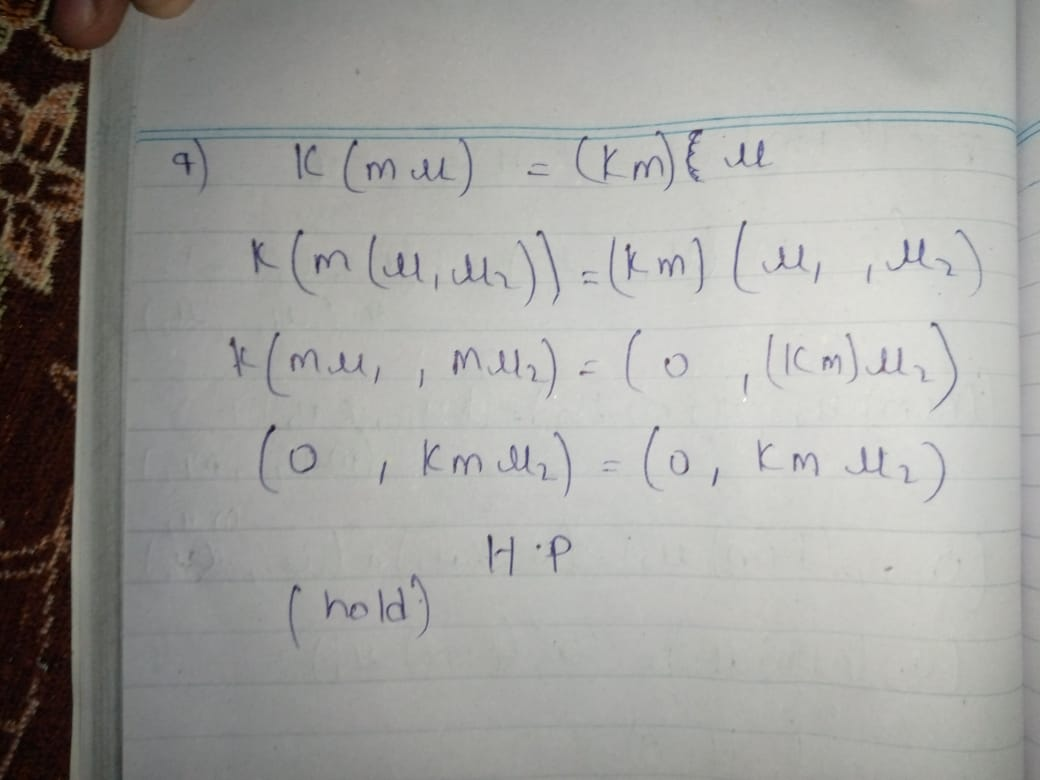 9) K (m u) = (Km) u
K (m (u, u₂)) = (km) (u₁ , u₂)
k (m u₁ , m u₂) = (0 , (Km) u₂)
(0 , Km u₂) = (0, Km u₂)
H.P
(hold)